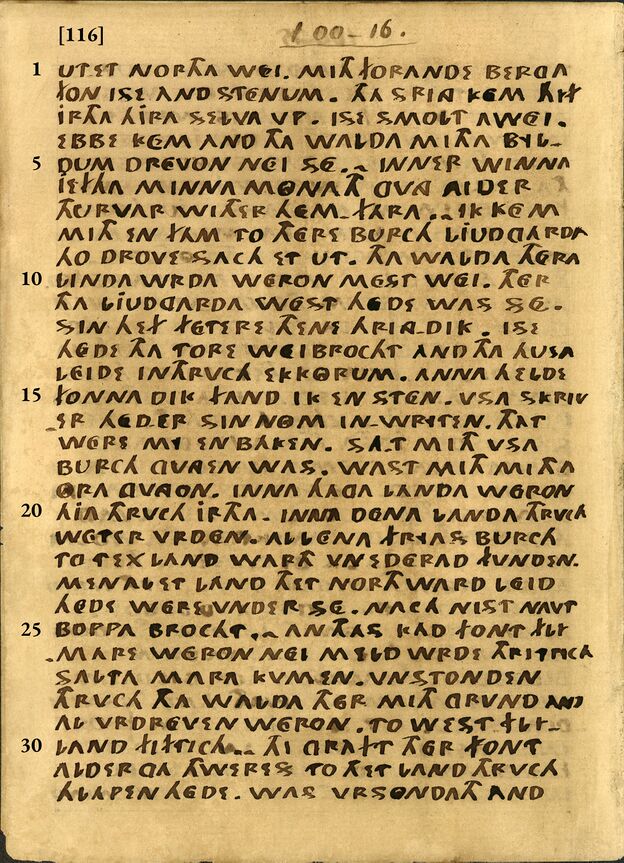 [116]
100-16.
1 UTET NORTHA WEI. MITH FORANDE BERGA
FON ISE AND STENUM. THA SRING KEM HYF
IRTHA HIRA SELVA VP. ISE SMOLT AWEI.
EBBE KEM AND THA WALDA MITHA BYL-
5 GUM DREVON NEI SE. INNER WINNA
IEFHA MINNA MONATH GVNG AIDER
THERVAR WITHER HEM-FARA. IK KEM
MITH EN FAM TO THERE BURCH LIUDGARDA
HO DROVE SACH ET UT. THA WALDA THERA
10 LINDA WRDA WERON MEST WEI. THER
THA LIUDGARDA WEST HEDE WAS SE.
SIN HEF FETERE THENE HRING-DIK. ISE
HEDE THA TORE WEI BROCHT AND THA HUSA
LEIDE IN THRVCH EKKORUM. ANNA HELDE
15 FONNA DIK FAND IK EN STEN. USA SKRIV
-ER HEDER SIN NOM IN-WRITEN. THAT
WERE MY EN BAKEN. SA-T MITH USA
BURCH GVNGEN WAS. WAST MITH MITHA
ORA GVNGON. INNA HAGA LANDA WERON
20 HIA THRVCH IRTHA. INNA DENA LANDA THRVCH
WETER VRDEN. ALLENA FRYAS BURCH
TO TEXLAND WARTH VNEDERAD FUNDEN.
MEN AL ET LAND THET NORTHWARD LEID
HEDE WERE VNDER SE. NACH NIST NAVT
25 BOPPA BROCHT. AN THAS KAD FONT FLY-
-MARE WERON NEI MELD WRDE THRITICH
SALTA MARA KVMEN. VNSTONDEN
THRVCH THA WALDA THER MITH GRUND AND
AL VRDREVEN WERON. TO WEST FLY-
30 LAND FIFTICH. THI GRAFT THER FONT
ALDERGA THWERES TO THET LAND THRVCH
HLAPEN HEDE. WAS VRSONDATH AND